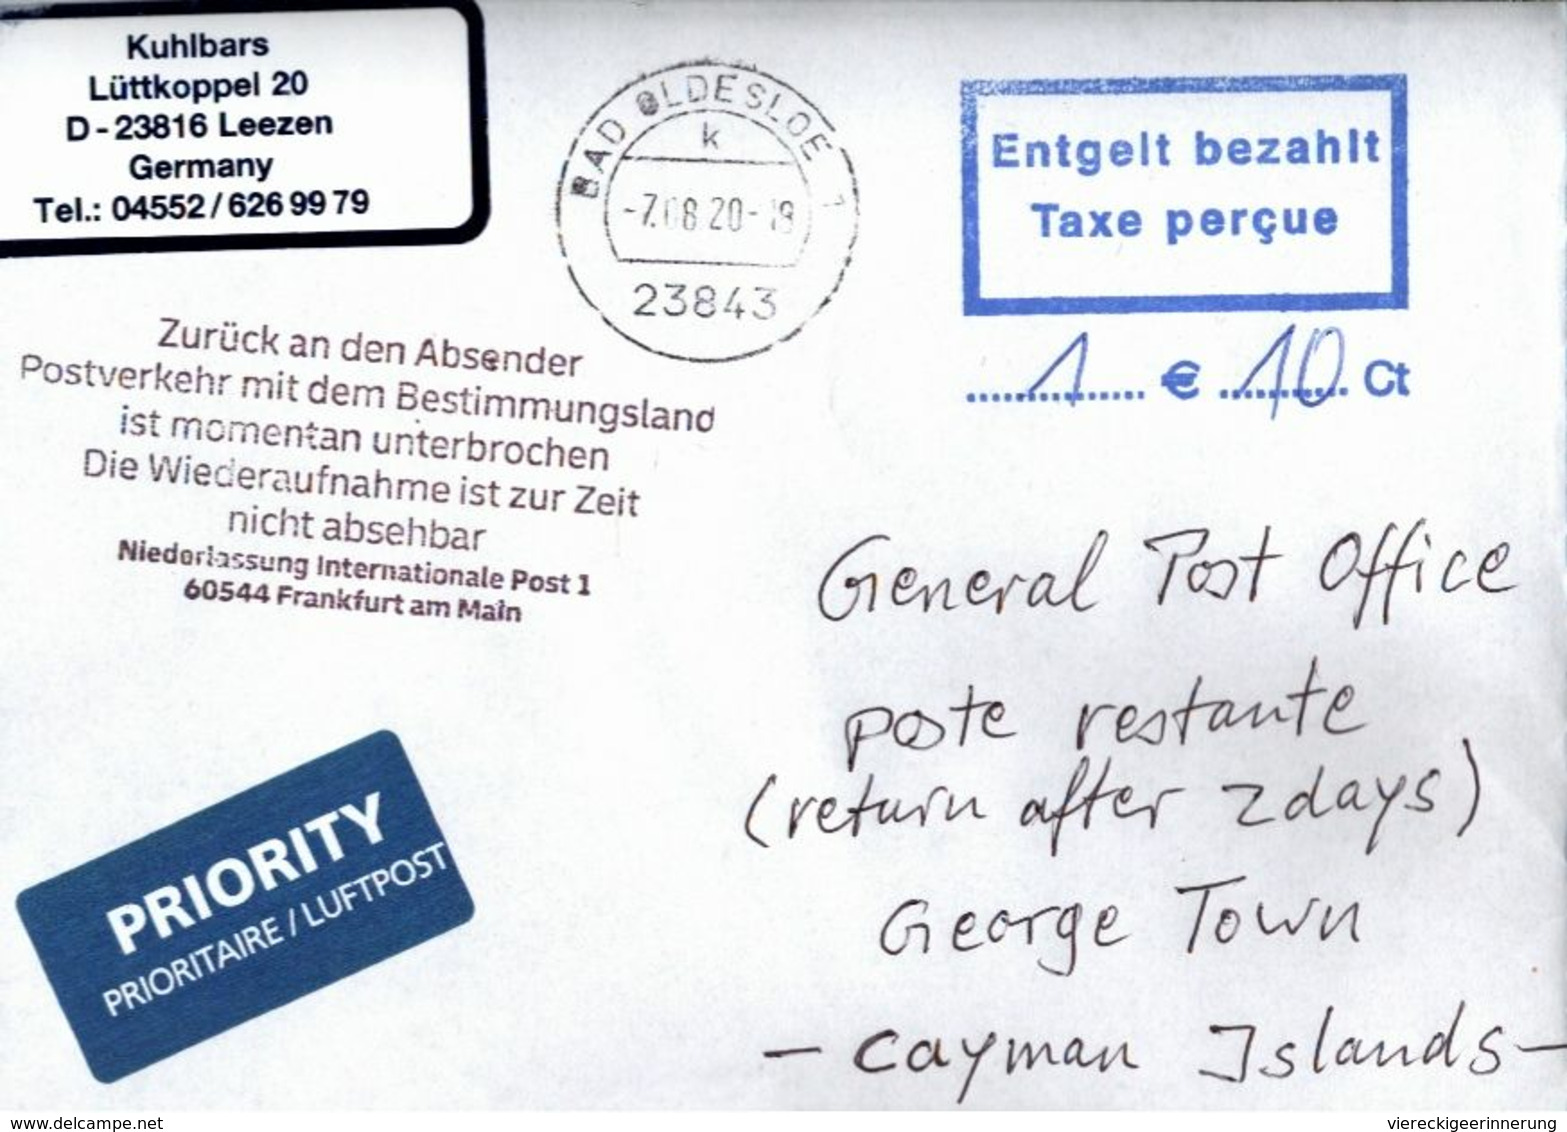 Kuhlbars
Lüttkoppel 20
D-23816 Leezen
Germany
Tel.: 04552/6269979
BAD OLDESLOE 1
k
-7.08.20-18
23843
Entgelt bezahlt
Taxe perçue
1 € 10 Ct
Zurück an den Absender
Postverkehr mit dem Bestimmungsland
ist momentan unterbrochen
Die Wiederaufnahme ist zur Zeit
nicht absehbar
Niederlassung Internationale Post 1
60544 Frankfurt am Main
General Post Office
poste restante
(return after 2 days)
George Town
- Cayman Islands -
PRIORITY
PRIORITAIRE / LUFTPOST
www.delcampe.net
viereckigeerinnerung